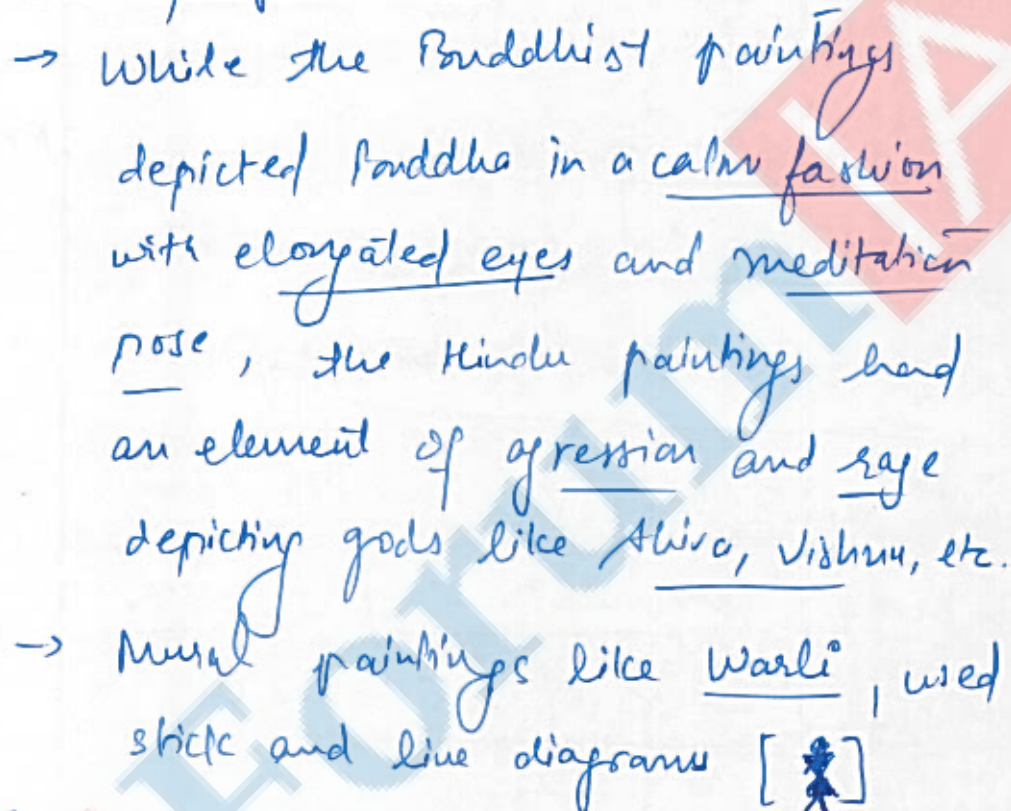 → While the Buddhist paintings
depicted Bouddha in a calm fashion
with elongated eyes and meditation
pose, the Hindu paintings had
an element of agression and rage
depicting gods like Shiva, Vishnu, etc.
→ Mural paintings like Warli, used
stick and line diagrams [ ]
Forum IA